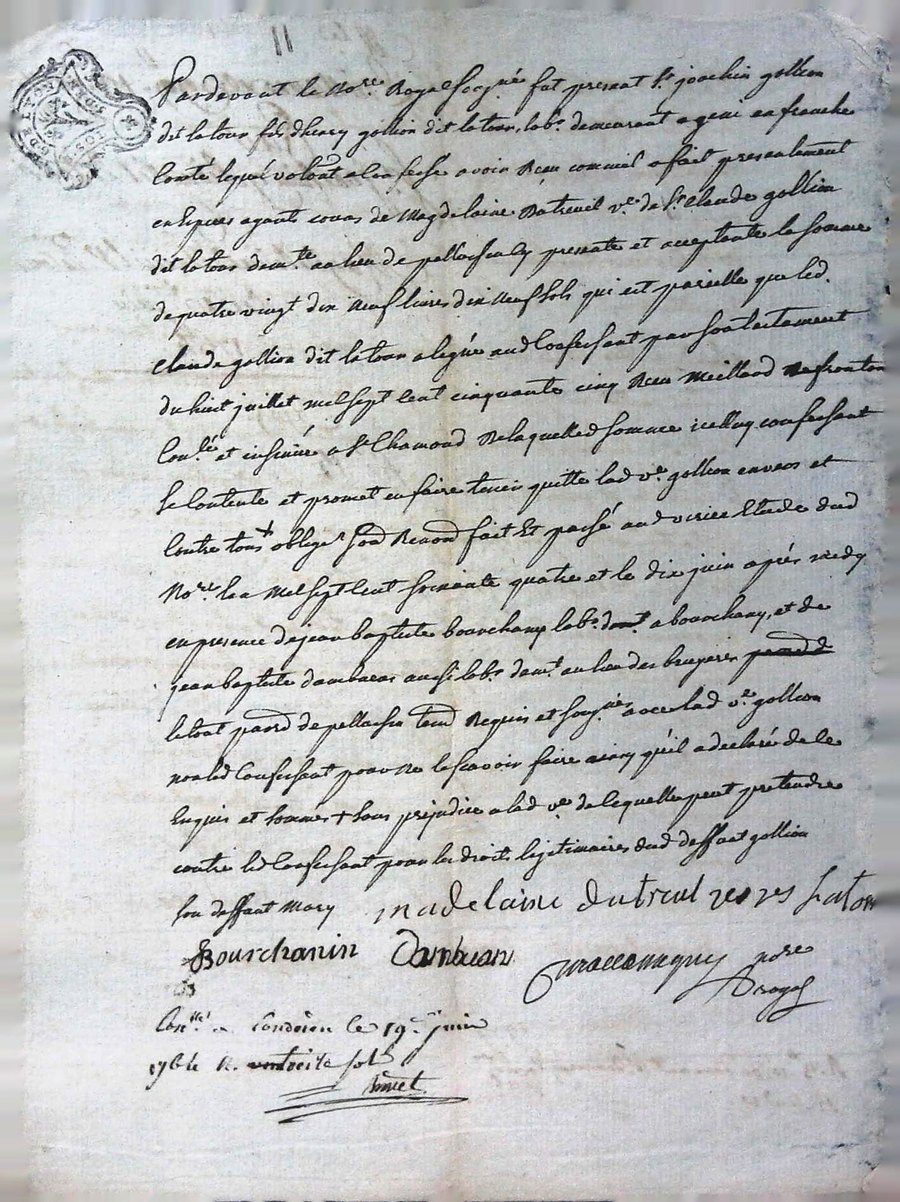 11
Pardevant le No.re Royal sosg.né fut present S.r joachin gollion
dit latour fils d'henry gollion dit latour, lab.r demeurant a geni en franche
Comté lequel volont a Confessé avoir Reçu comme il a fait presentement
en Espèces ayants cours de Magdelaine Dutreuil v.e de S.r Claude gollion
dit latour dem.te au lieu de pellussin Cy presente et acceptante la somme
de quatre vingt dix Neuf livres dix Neuf sols qui est pareille que led.
Claude gollion dit latour a legué aud Confessant par son testament
du huit juillet mil sept Cent cinquante cinq Reçu
Con.lé et insinué a S.t Chamond De laquelle d somme icelluy confessant
se Contente et promet en faire tenir quitte lad v.e gollion envers et
Contre tous + oblige.t fait Et passé aud virieu Etude dud
No.re l'an Mil sept Cent soixante quatre et le dix juin après midy
en presence de jean baptiste bourchany lab.r dem.t a bourchany, et de
jean baptiste dambuean aussi lab.r dem.t au lieu des bruyeres
le tout parr.d de pellussin temd Requis et sousg.nés avec lad v.e gollion
non led Confessant pour ne le scavoir faire ainsy qu'il a declaré de ce
Enquis et sommés + sans prejudice a lad v.e de lequelle peut pretendre
contre led Confessant pour les droits legitimaires dud deffunt gollion
son deffunt Mary madelaine dutreul veves latour
Bourchanin Dambuean no.re
royal
Con.llé a Condrieu le 19.e juin
1764 R. sols